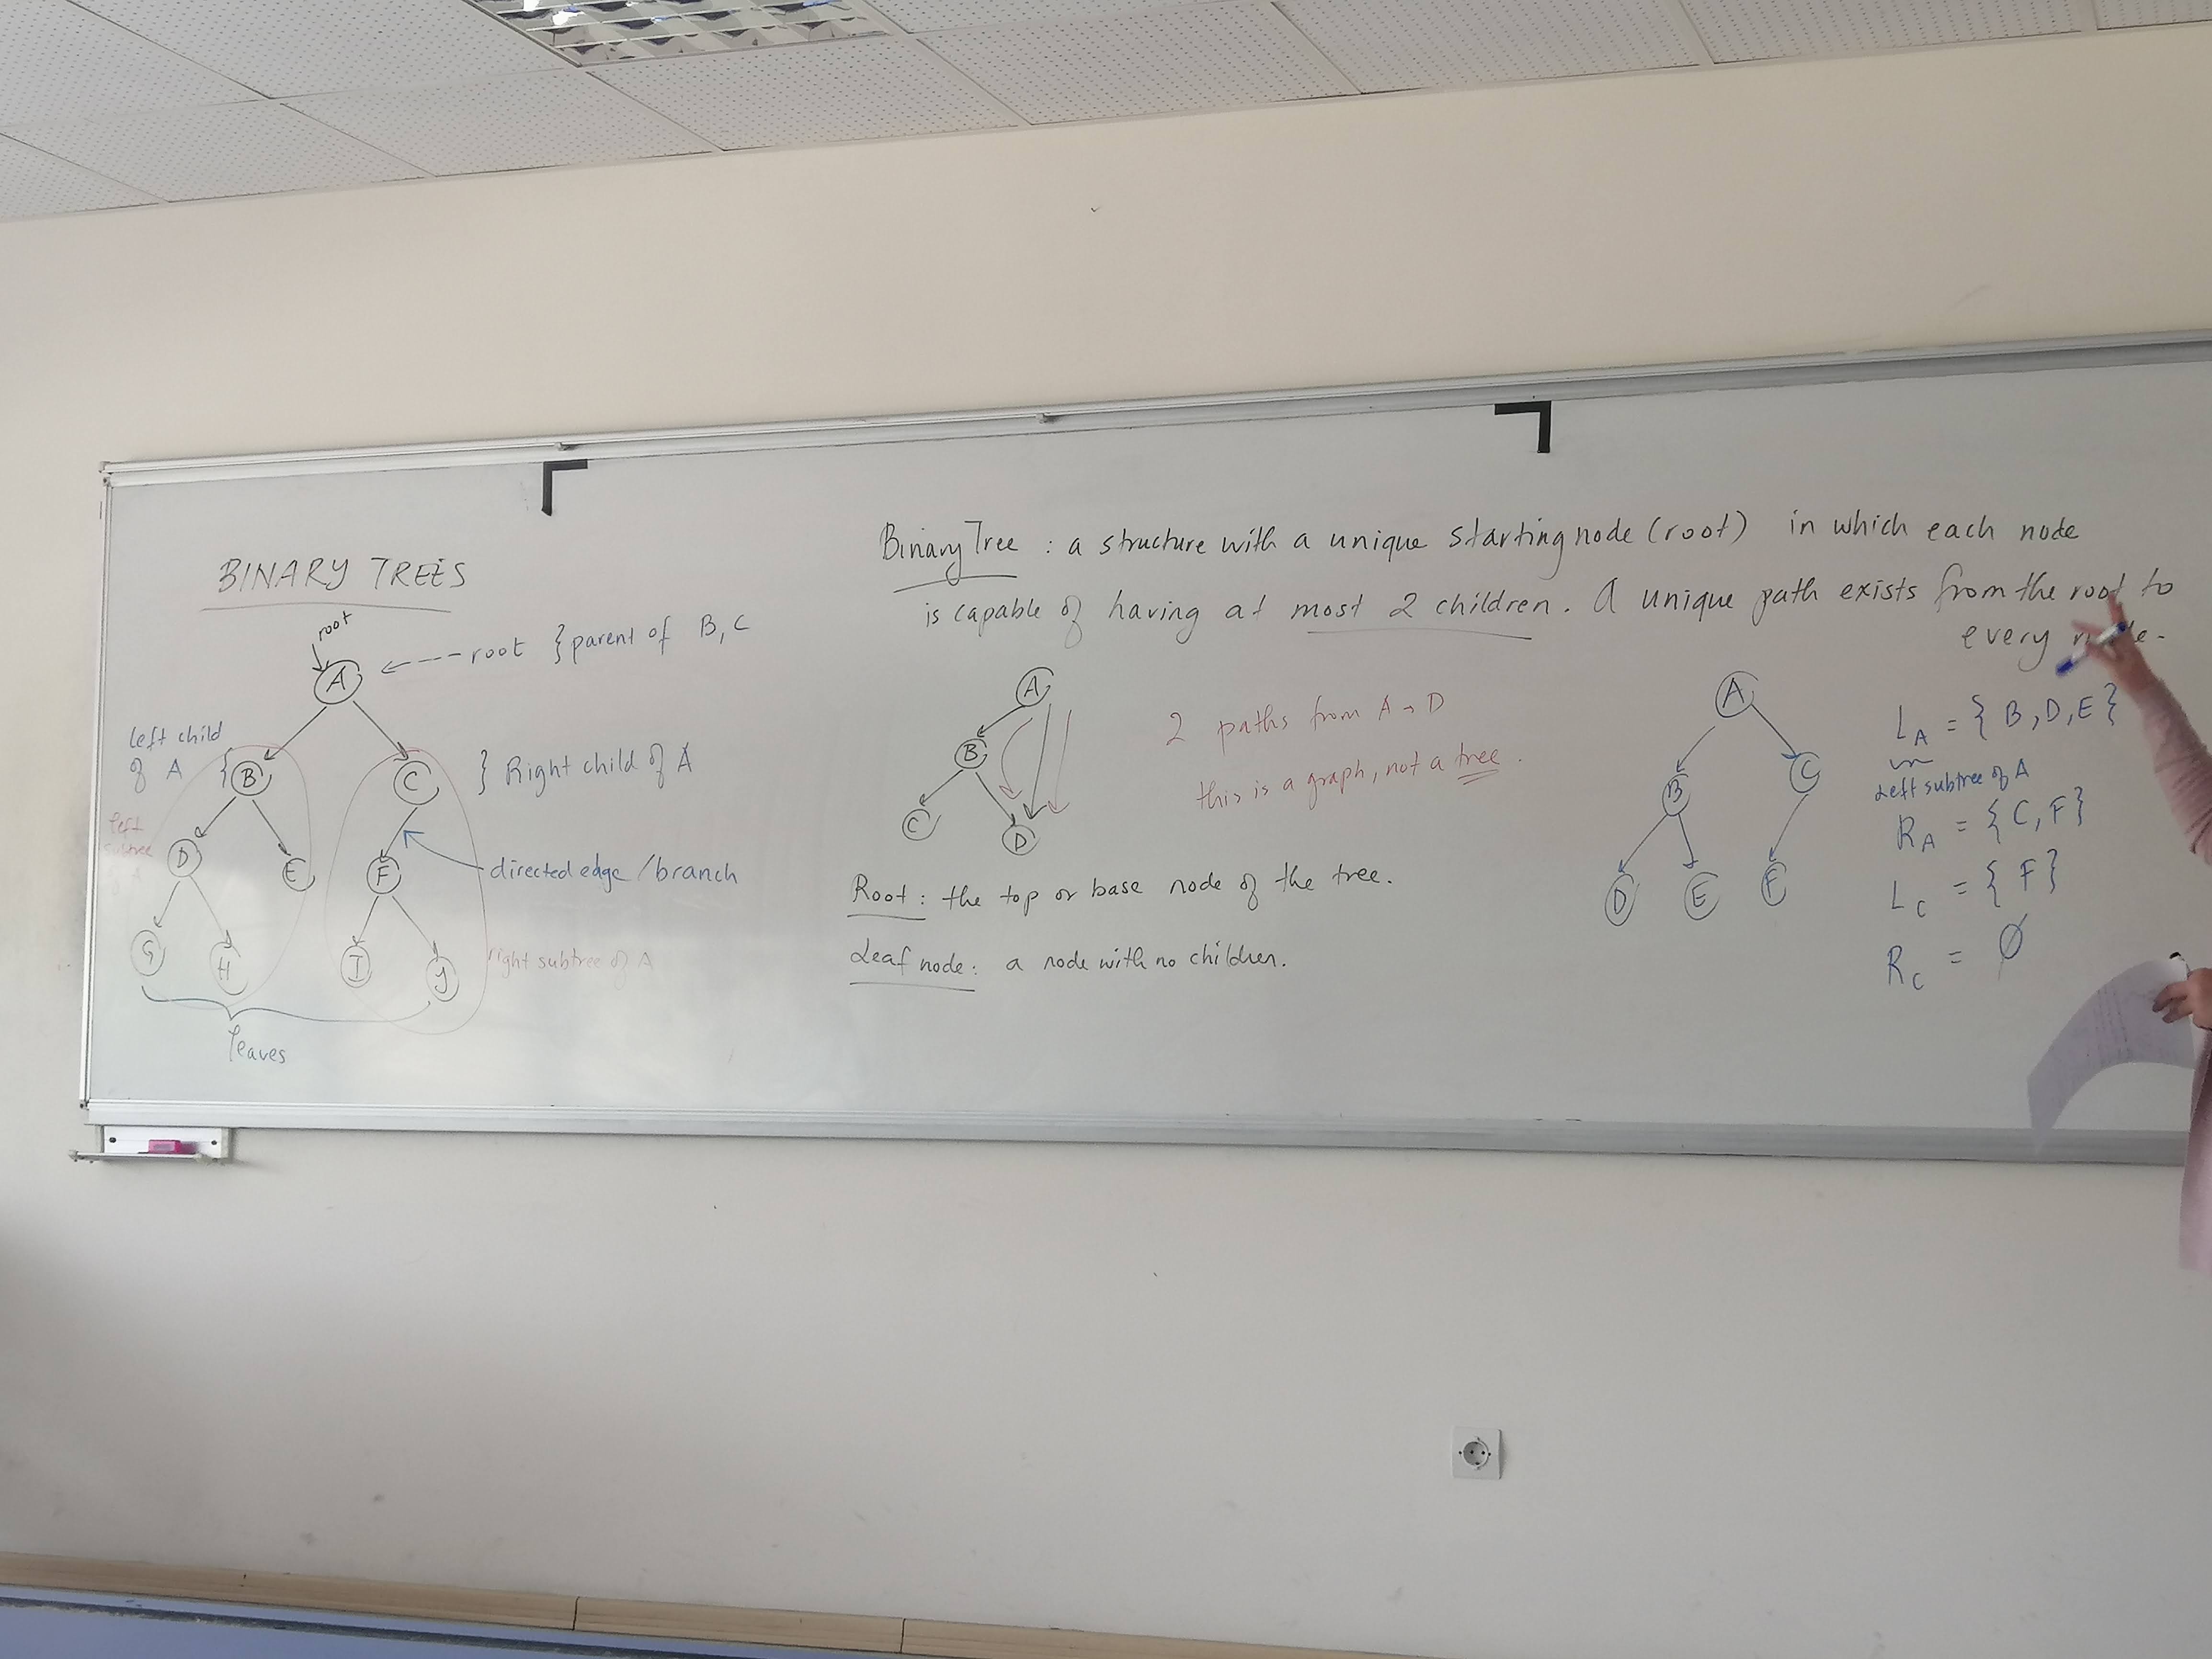 BINARY TREES
root
root } parent of B, C
A
Left child
of A {
B
C
} Right child of A
left
subtree
of A
D
E
F
directed edge / branch
G
H
I
J
right subtree of A
leaves
Binary Tree : a structure with a unique starting node (root) in which each node
is capable of having at most 2 children. A unique path exists from the root to
every node.
A
B
C
D
2 paths from A → D
this is a graph, not a tree.
Root : the top or base node of the tree.
Leaf node : a node with no children.
A
B
C
D
E
F
L_A = { B, D, E }
Left subtree of A
R_A = { C, F }
L_C = { F }
R_C = ∅